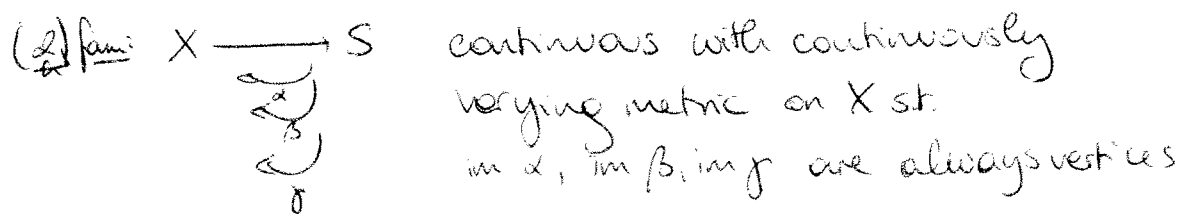 (2) fam: X ⟶ S continuous with continuously
α varying metric on X s.t.
β im α, im β, im γ are always vertices
γ